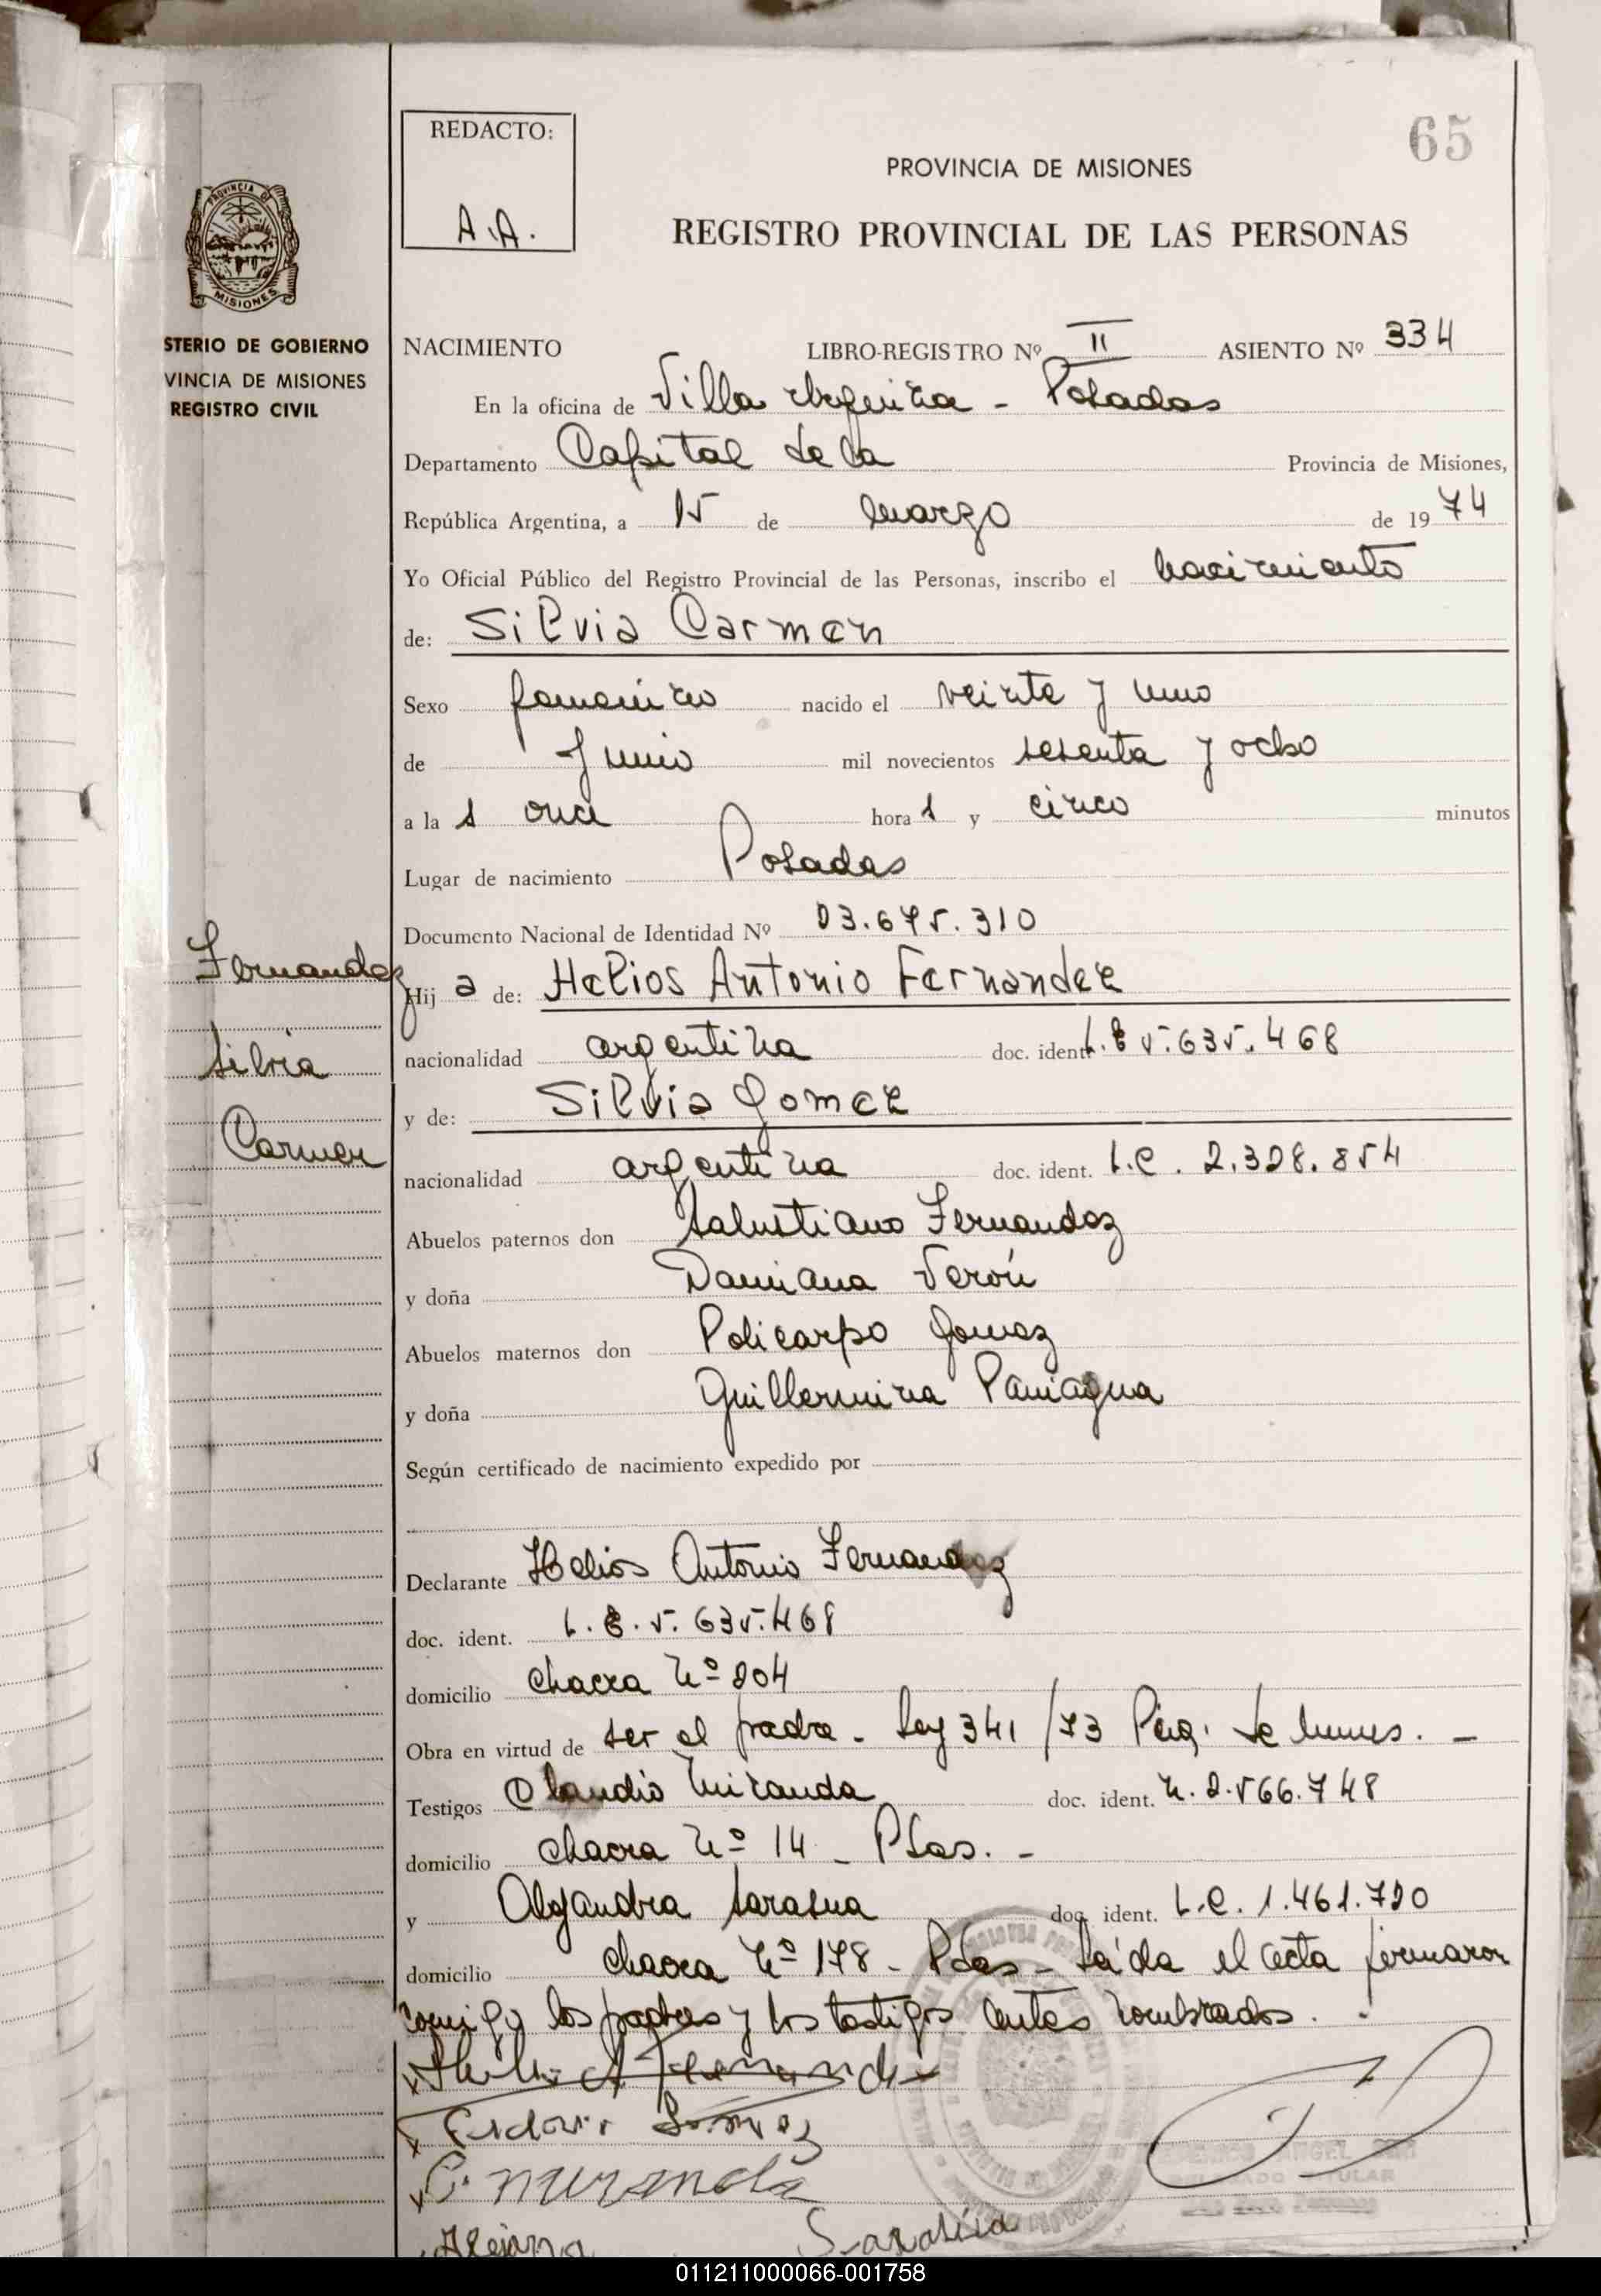 REDACTO:
A.A.
65
PROVINCIA DE MISIONES
REGISTRO PROVINCIAL DE LAS PERSONAS
PROVINCIA DE
MISIONES
STERIO DE GOBIERNO
VINCIA DE MISIONES
REGISTRO CIVIL
NACIMIENTO LIBRO-REGISTRO Nº II ASIENTO Nº 334
En la oficina de Villa Urquiza - Posadas
Departamento Capital de la Provincia de Misiones,
República Argentina, a 15 de marzo de 1974
Yo Oficial Público del Registro Provincial de las Personas, inscribo el nacimiento
de: Silvia Carmen
Sexo femenino nacido el veinte y uno
de Junio mil novecientos sesenta y ocho
a la s once hora s y cinco minutos
Lugar de nacimiento Posadas
Documento Nacional de Identidad Nº 03.675.310
Fernandez
Silvia
Carmen
Hij a de: Helios Antonio Fernandez
nacionalidad argentina doc. ident. L.E 5.635.468
y de: Silvia Gomez
nacionalidad argentina doc. ident. L.C. 2.328.854
Abuelos paternos don Salustiano Fernandez
y doña Damiana Verón
Abuelos maternos don Policarpo Gomez
y doña Guillermina Paniagua
Según certificado de nacimiento expedido por
Declarante Helios Antonio Fernandez
doc. ident. L.E. 5.635.468
domicilio chacra Nº 204
Obra en virtud de ser el padre - Ley 341/73
Testigos Claudio Miranda doc. ident. 2.566.748
domicilio chacra Nº 14 - Pdas. -
y Alejandra Sarasua doc. ident. L.C. 1.461.720
domicilio chacra Nº 178 - Pdas - Leída el acta firmaron
conmigo los padres y los testigos antes nombrados. -
Fernandez
Gomez
C. miranda
Sarasua
ANGEL
TITULAR
011211000066-001758